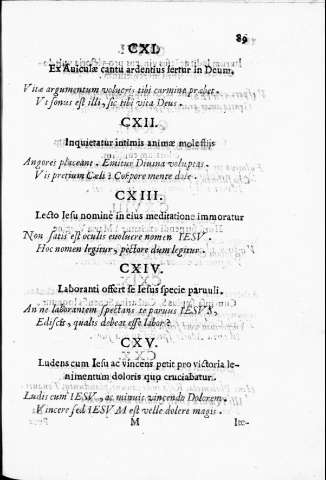 89
CXI.
Ex Auiculæ cantu ardentius fertur in Deum.
Vitæ argumentum volucris tibi carmina præbet.
Vt sonus est illi, sic tibi vita Deus.
CXII.
Inquietatur intimis animæ molestijs
Angores placeant. Emitur Diuina voluptas.
Vis pretium Cæli? Corpore mente dole.
CXIII.
Lecto Iesu nomine in eius meditatione immoratur
Non satis est oculis euoluere nomen IESV.
Hoc nomen legitur, pectore dum legitur.
CXIV.
Laboranti offert se Iesus specie paruuli.
An ne laborantem spectans te paruus IESVS,
Ediscis, qualis debeat esse labor?
CXV.
Ludens cum Iesu ac vincens petit pro victoria le-
nimentum doloris quo cruciabatur.
Ludis cum IESV, ac minuis vincendo Dolorem.
Vincere sed IESVM est velle dolere magis.
M Ite-